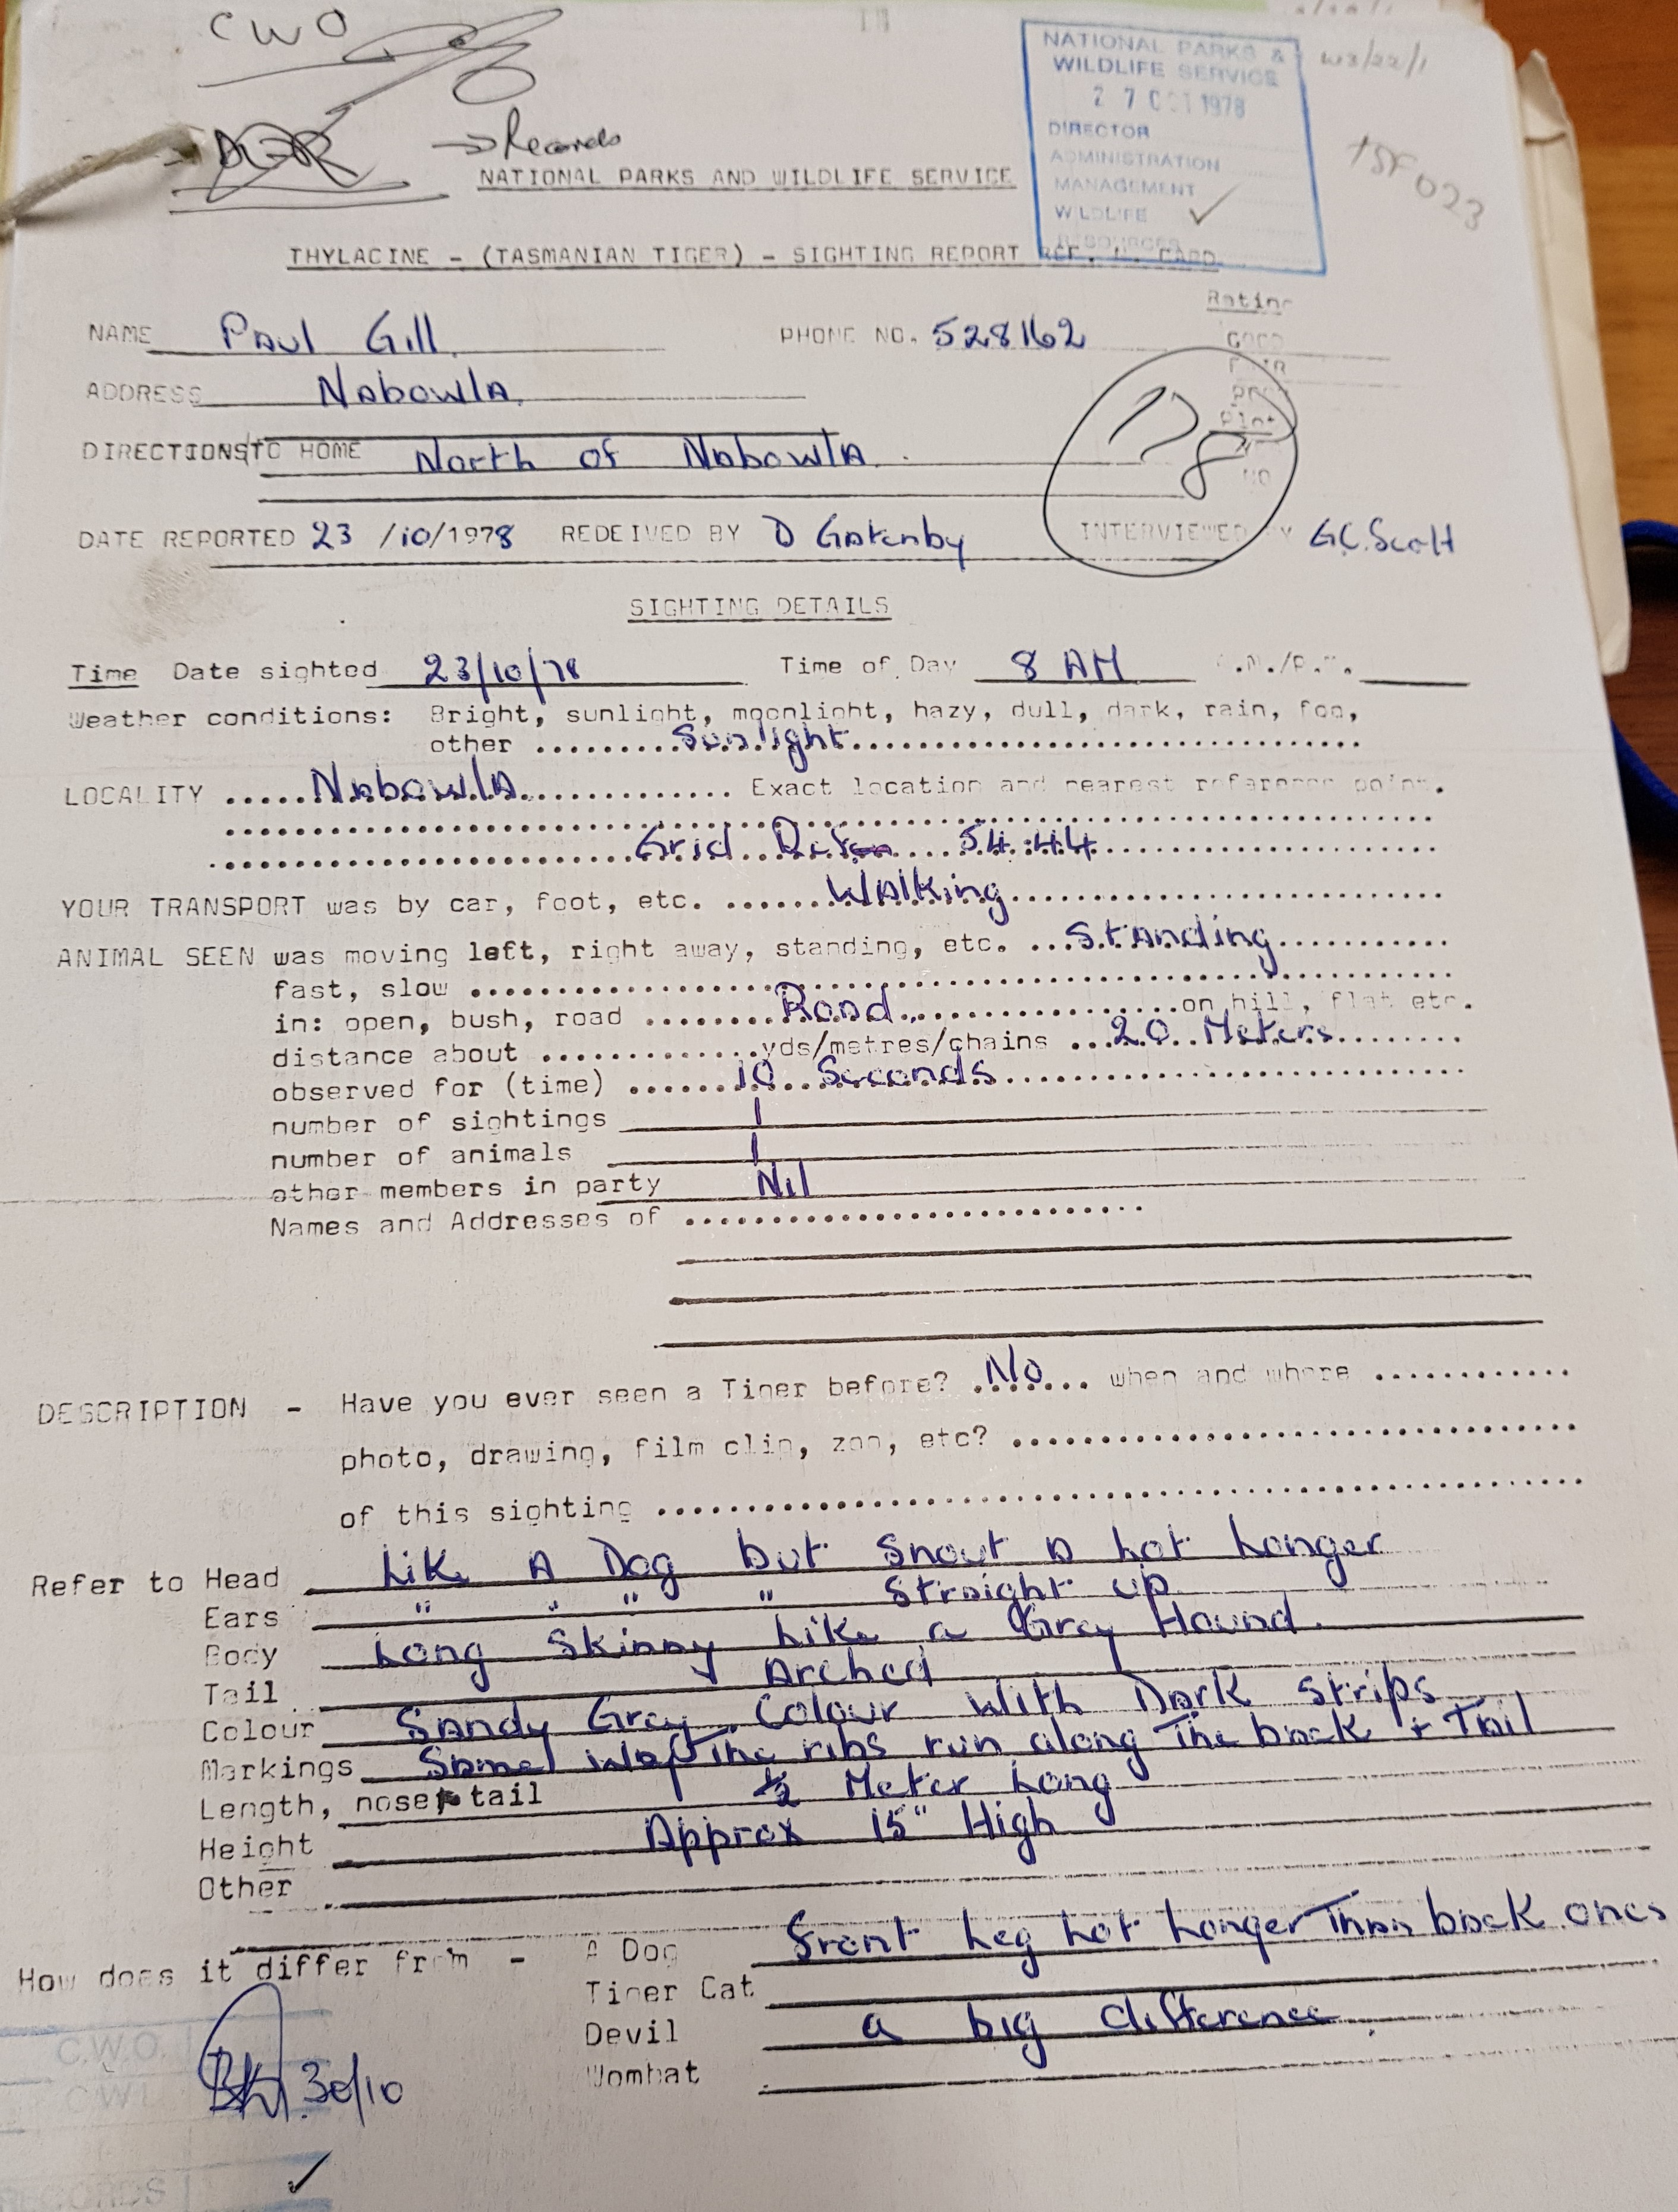 CWO
W3/22/1
NATIONAL PARKS &
WILDLIFE SERVICE
27 OCT 1978
DIRECTOR
ADMINISTRATION
MANAGEMENT
WILDLIFE ✓
RESOURCES
→ Records
TSF 023
NATIONAL PARKS AND WILDLIFE SERVICE
THYLACINE - (TASMANIAN TIGER) - SIGHTING REPORT REF. N. CARD
Rating
GOOD
FAIR
Plot
NO
NAME Paul Gill PHONE NO. 528162
ADDRESS Nabowla.
178
DIRECTIONS TO HOME North of Nabowla.
DATE REPORTED 23 /10/1978 REDEIVED BY D Gatenby INTERVIEWED BY G.C. Scott
SIGHTING DETAILS
Time Date sighted 23/10/78 Time of Day 8 AM .M./P.M.
Weather conditions: Bright, sunlight, moonlight, hazy, dull, dark, rain, fog,
other ..........Sunlight..........
LOCALITY .....Nabowla............... Exact location and nearest reference point.
Grid 54:44
YOUR TRANSPORT was by car, foot, etc. .......Walking..........
ANIMAL SEEN was moving left, right away, standing, etc. ...Standing...........
fast, slow ..........
in: open, bush, road .........Road.................on hill, flat etc.
distance about ..............yds/metres/chains ...20 Meters.........
observed for (time) .......10 Seconds..........
number of sightings 1
number of animals 1
other members in party Nil
Names and Addresses of ..........
DESCRIPTION - Have you ever seen a Tiger before? .No.... when and where ............
photo, drawing, film clip, zoo, etc? ..........
of this sighting ..........
Refer to Head Like A Dog but Snout a hot Longer
Ears " " " " Straight up
Body Long Skinny Like a Grey Hound.
Tail Arched
Colour Sandy Grey. Colour with Dark Strips
Markings the ribs run along The back + Tail
Length, nose tail ½ Meter Long
Height Approx 15" High
Other
How does it differ from - A Dog Front Leg hot Longer Than back ones
Tiger Cat
Devil a big difference.
Wombat
C.W.O.
CWI
30/10
RECORDS ✓